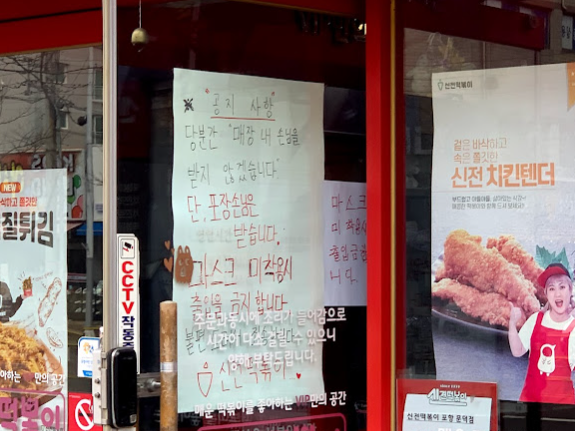 "공지 사항"
당분간 "매장 내 손님을
받지 않겠습니다"
단, 포장손님은
받습니다.
마스크 미착용시
출입을 금지합니다
주문과동시에 조리가 들어감으로
시간이 다소 걸릴 수 있으니
양해 부탁드립니다.
신전떡볶이
매운 떡볶이를 좋아하는 VIP만의 공간
마스크
미착용
출입금
니다.
CCTV 작동중
NEW
바삭하고 쫄깃한
질튀김
아하는 만의 공간
떡볶이
신전떡볶이
겉은 바삭하고
속은 쫄깃한
신전 치킨텐더
SINCE 1999
신전떡볶이
신전떡볶이 포항 문덕점